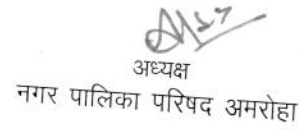 अध्यक्ष
नगर पालिका परिषद अमरोहा